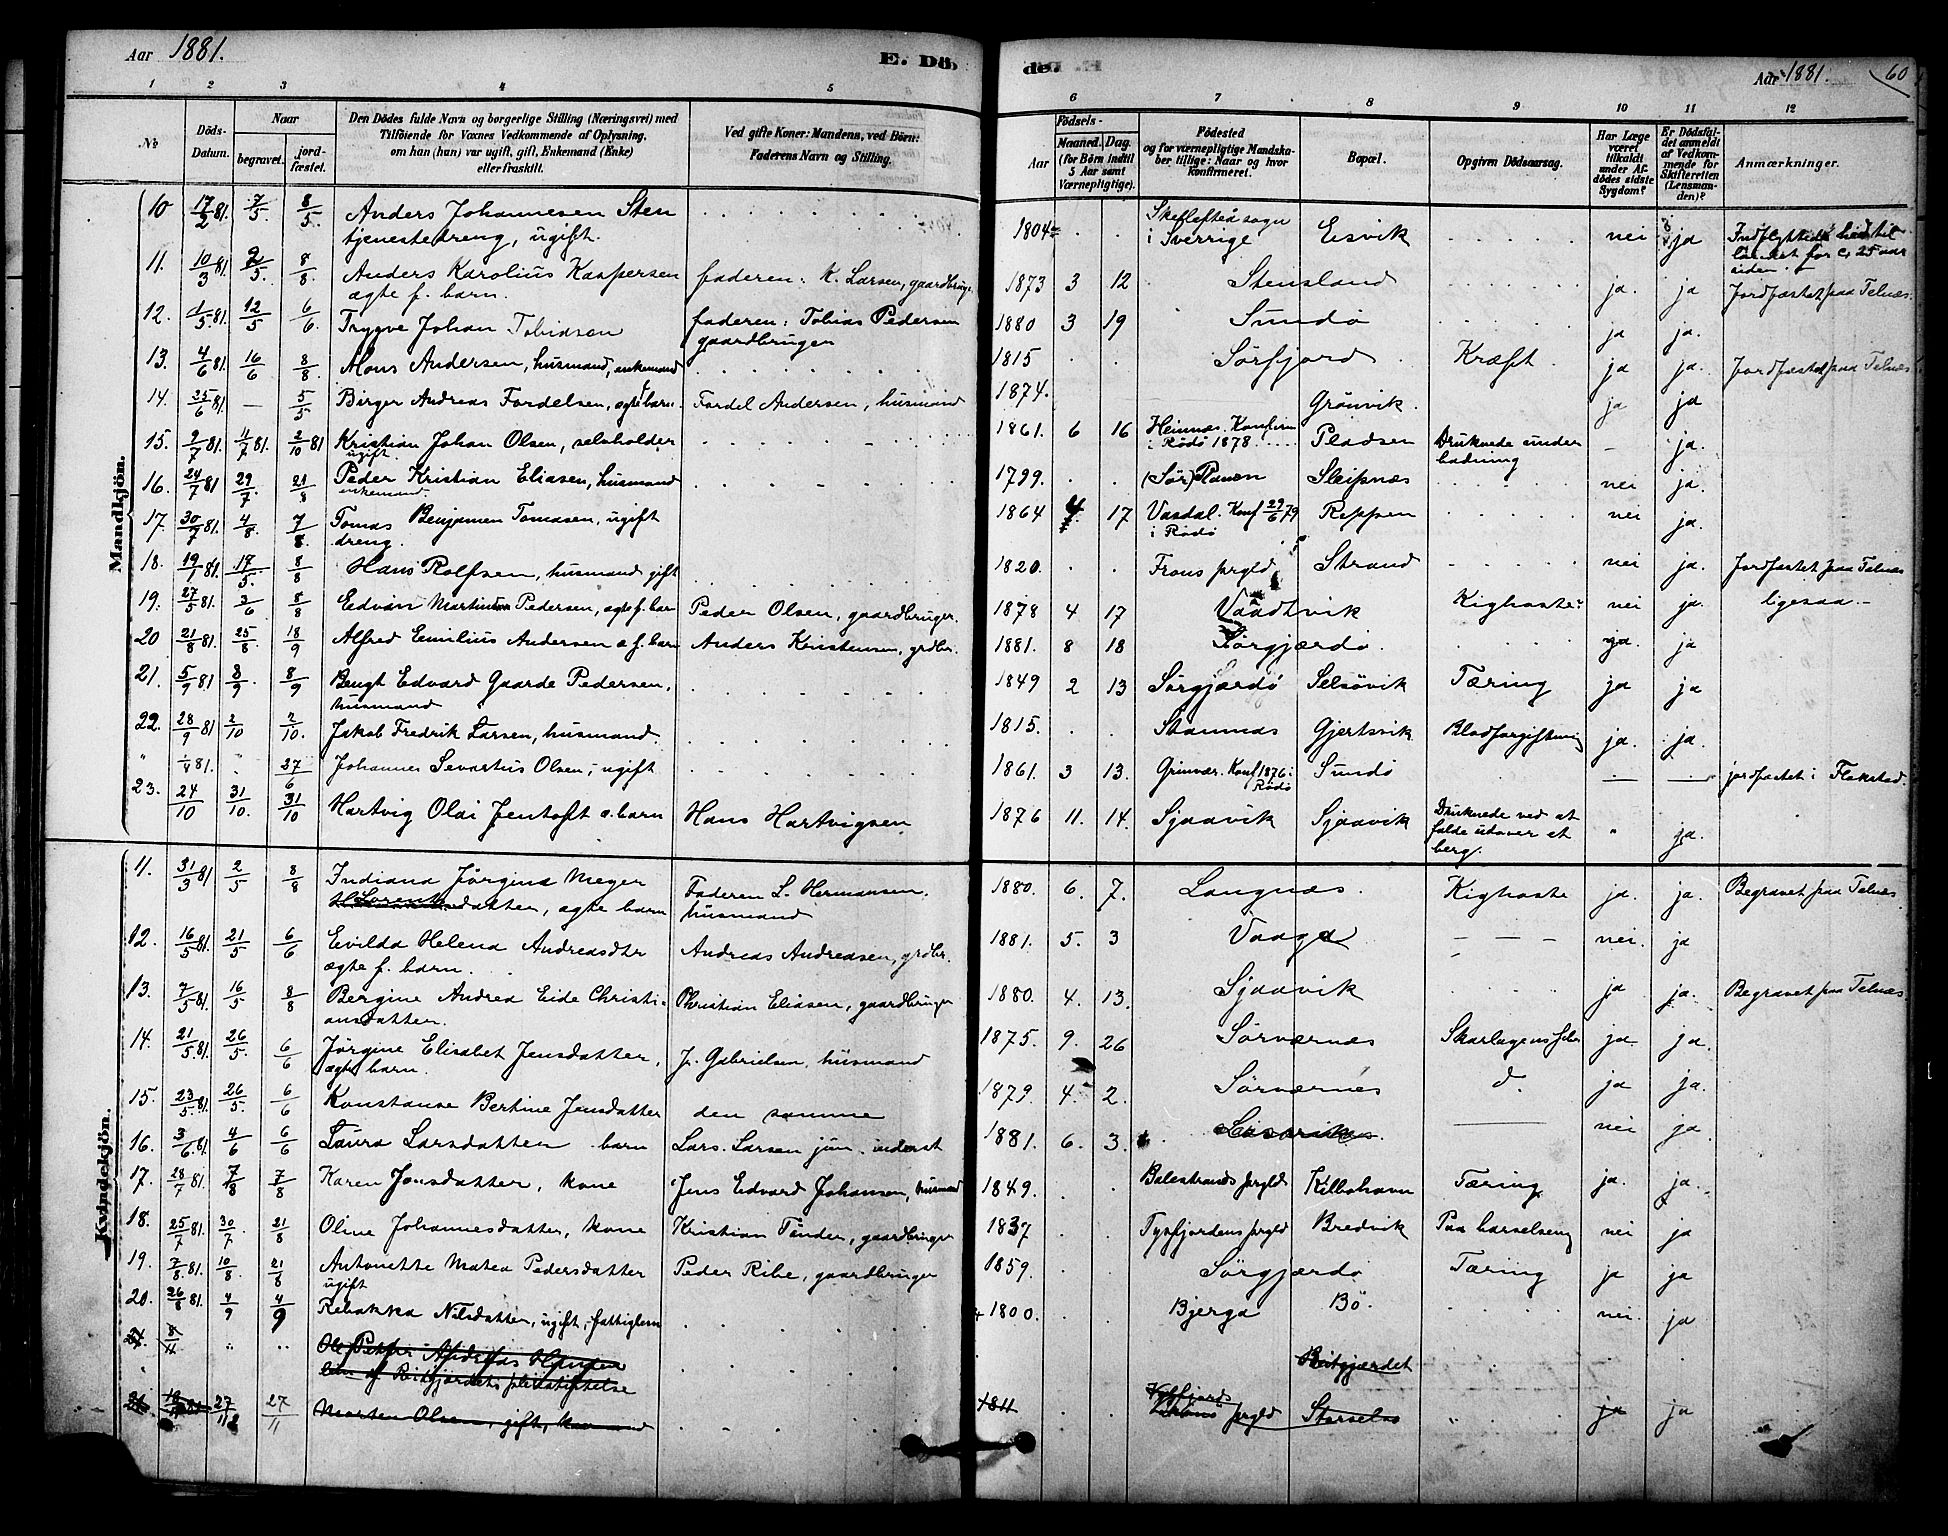 Aar 1881.
E. Dö-
de.
Aar 1881.
60
1 2 3 4 5 6 7 8 9 10 11 12
No
Döds-Datum.
Naar
begravet.
jord-fæstet.
Den Dödes fulde Navn og borgerlige Stilling (Næringsvei) med
Tilföiende for Voxnes Vedkommende af Oplysning,
om han (hun) var ugift, gift, Enkemand (Enke)
eller fraskilt.
Ved gifte Koner: Mandens, ved Börn:
Faderens Navn og Stilling.
Födsels-
Aar
Maaned. Dag.
(for Börn indtil
5 Aar samt
Værnepligtige).
Födested
og for værnepligtige Mandska-
ber tillige: Naar og hvor
konfirmeret.
Bopæl.
Opgiven Dödsaarsag.
Har Læge
været
tilkaldt
under Af-
dödes sidste
Sygdom?
Er Dödsfal-
det anmeldt
af Vedkom-
mende for
Skifteretten
(Lensman-
den)?
Anmærkninger.
Mandkjön.
10 17/2 81. 7/5. 8/5. Anders Johannesen Sten 1804 Skellefteå sogn Eisvik nei ja Indflyttede hertil
tjenestedreng, ugift. i Sverrige landet for c. 25 aar
siden.
11. 10/3 81. 2/5. 8/8. Anders Karolius Kaspersen faderen: K. Larsen, gaardbruger 1873 3 12 Stensland ja. ja Jordfæstet paa Telnæs.
ægte f. barn.
12. 1/5 81. 12/5 6/6. Trygve Johan Tobiassen faderen: Tobias Pedersen 1880 3 19 Sundö ja ja.
gaardbruger
13. 4/6 81. 16/6 8/8. Mons Andersen, husmand, enkemand 1815 Sörfjord Kræft. ja ja. Jordfæstet paa Telnæs
14. 25/6 81. — 5/5 Birger Andreas Fordelsen, ægte barn. Fordel Andersen, husmand 1874. Grönvik. ja ja
15. 2/7 81. 4/7 81. 2/10 81 Kristian Johan Olsen, selvholder 1861. 6 16 Heimnæs. Konfirm. Pladsen Druknede under – ja.
ugift. i Rödö 1878. badning
16. 24/7 81 29/7. 21/8 Peder Kristian Eliasen, husmand 1799. (Sör) Ranen Sleipnæs nei ja.
enkemand.
17. 30/7 81. 4/8. 7/8. Tomas Benjamin Tomasen, ugift 1864 4. 17 Vasdal. Konf 29/6 79 Reppen nei ja.
dreng. i Rödö
18. 19/1 81. 17/5. 8/8 Hans Rolfsen, husmand gift 1820. Frons prgld Strand nei ja. Jordfæstet paa Telnæs
19. 27/5 81. 3/6 8/8 Edvin Martinus Pedersen, ægte f. barn Peder Olsen, gaardbruger. 1878 4 17 Vaadtvik Kighoste nei ja. ligesaa.–
20 21/8 81. 25/8. 18/9 Alfred Emilius Andersen æ f. barn Anders Kristensen, grdbr. 1881. 8 18 Sörgjærdö. ja. ja
21. 5/9 81 8/9 8/9 Bengt Edvard Gaarde Pedersen, 1849 2 13 Sörgjærdö Selsövik Tæring ja ja
husmand
22. 28/9 81 2/10 2/10. Jakob Fredrik Larsen, husmand. 1815. Stamnæs Gjertsvik Blodforgiftning ja. ja.
" 1/4 81. " 27/6 Johannes Sevartius Olsen, ugift 1861. 3 13. Grimvær. Konf 1876 i Sundö — — jordfæstet i Flakstad.
Rödö
23. 24/10 31/10. 31/10 Hartvig Olai Jentoft æ. barn Hans Hartvigsen 1876 11. 14. Sjaavik Sjaavik Druknede ved at " ja.
falde udover et
berg.
Kvindekjön.
11. 31/3 81 2/5 8/8 Indiana Jörgine Meyer Faderen L. Hermansen, 1880. 6. 7. Langnæs. Kighoste ja. ja. Begravet paa Telnæs
Lorentsdatter, ægte barn husmand
12. 16/5 81. 21/5 6/6 Evilda Helena Andreasdtr Andreas Andreasen, grdbr. 1881. 5. 3 Vaaga — — — nei. ja
ægte f. barn.
13. 7/5 81. 16/5 8/8 Bergine Andrea Eide Christi- Christian Eliasen, gaardbruger 1880. 4. 13. Sjaavik ja ja. Begravet paa Telnæs.
ansdatter.
14. 21/5 81. 26/5. 6/6 Jörgine Elisabet Jensdatter, J. Gabrielsen, husmand 1875. 9. 26 Sörværnes Skarlagensfeber ja. ja.
ægte barn.
15. 23/5 81. 26/5. 6/6 Konstanse Bertine Jensdatter den samme 1879. 4. 2. Sörværnes d. ja ja.
16. 3/6 81. 4/6 6/6 Laura Larsdatter barn Lars Larsen jun. inderst 1881. 6. 3. —— nei ja.
17. 28/7 81. 7/8 7/8 Karen Jonsdatter, kone Jens Edvard Johansen, husmand 1849. Balestrands prgld Kilbohavn Tæring. ja. ja.
18. 25/7 81. 30/7. 21/8 Oline Johannesdatter, kone Kristian Tönder, gaardbruger 1837 Tysfjordens prgld Bredvik Paa barselseng nei ja
19. 7/8 81. 10/8. 21/8 Antonette Matea Pedersdatter Peder Ribe, gaardbruger 1859. Sörgjærdö Tæring ja ja
ugift
20. 26/8 81. 4/9 4/9 Rebekka Nilsdatter, ugift, fattiglem 1800. Bjerga Bö. nei. ja
8/11 " " Ole Petter Andreas Hansen Reitgjærdet
lem af Reitgjærdets pleiestiftelse
27/11 27/11 Morten Olsen, gift, 1811 Tysfjords prgld Storselsö " ja ja